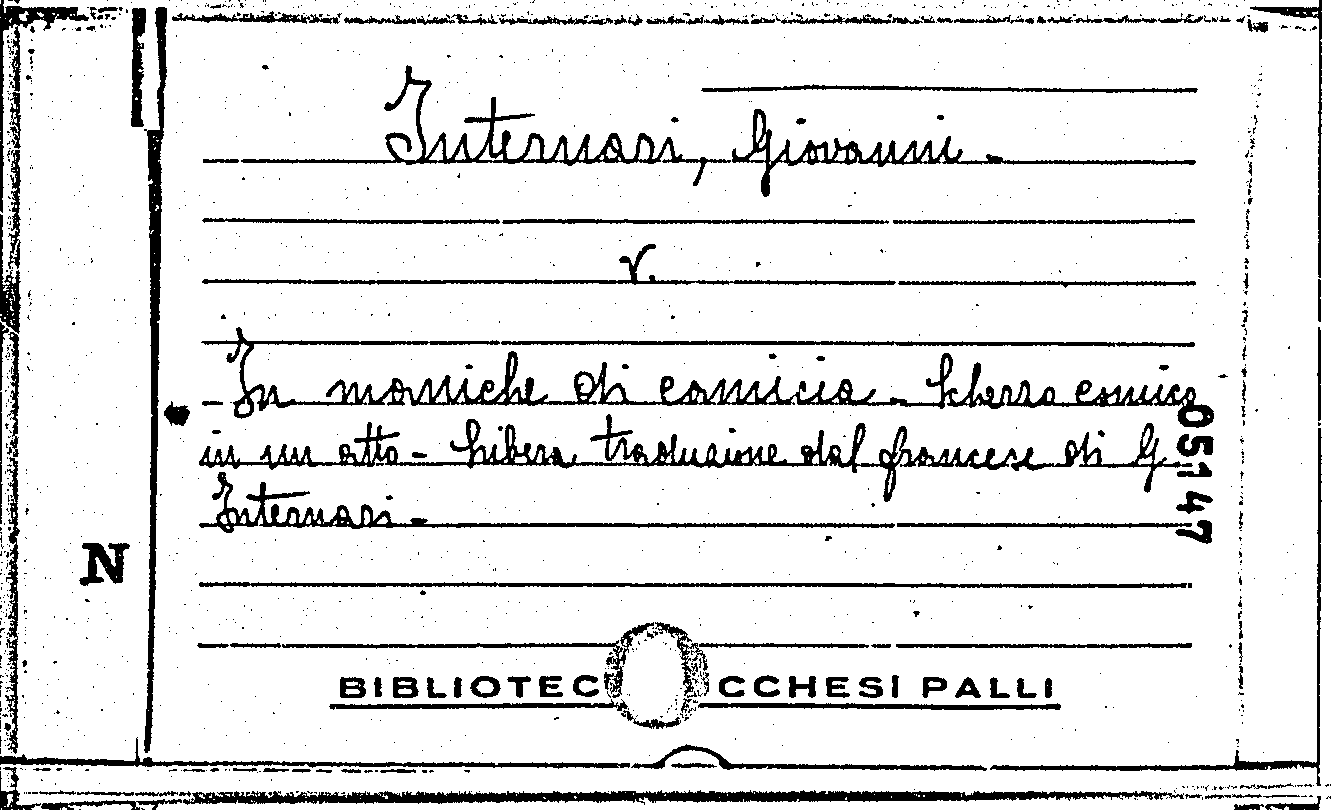 Internari, Giovanni -
v.
- In maniche di camicia - Scherzo comico
in un atto - Libera traduzione dal francese di G
Internari -
05147
N
BIBLIOTEC CCHESI PALLI